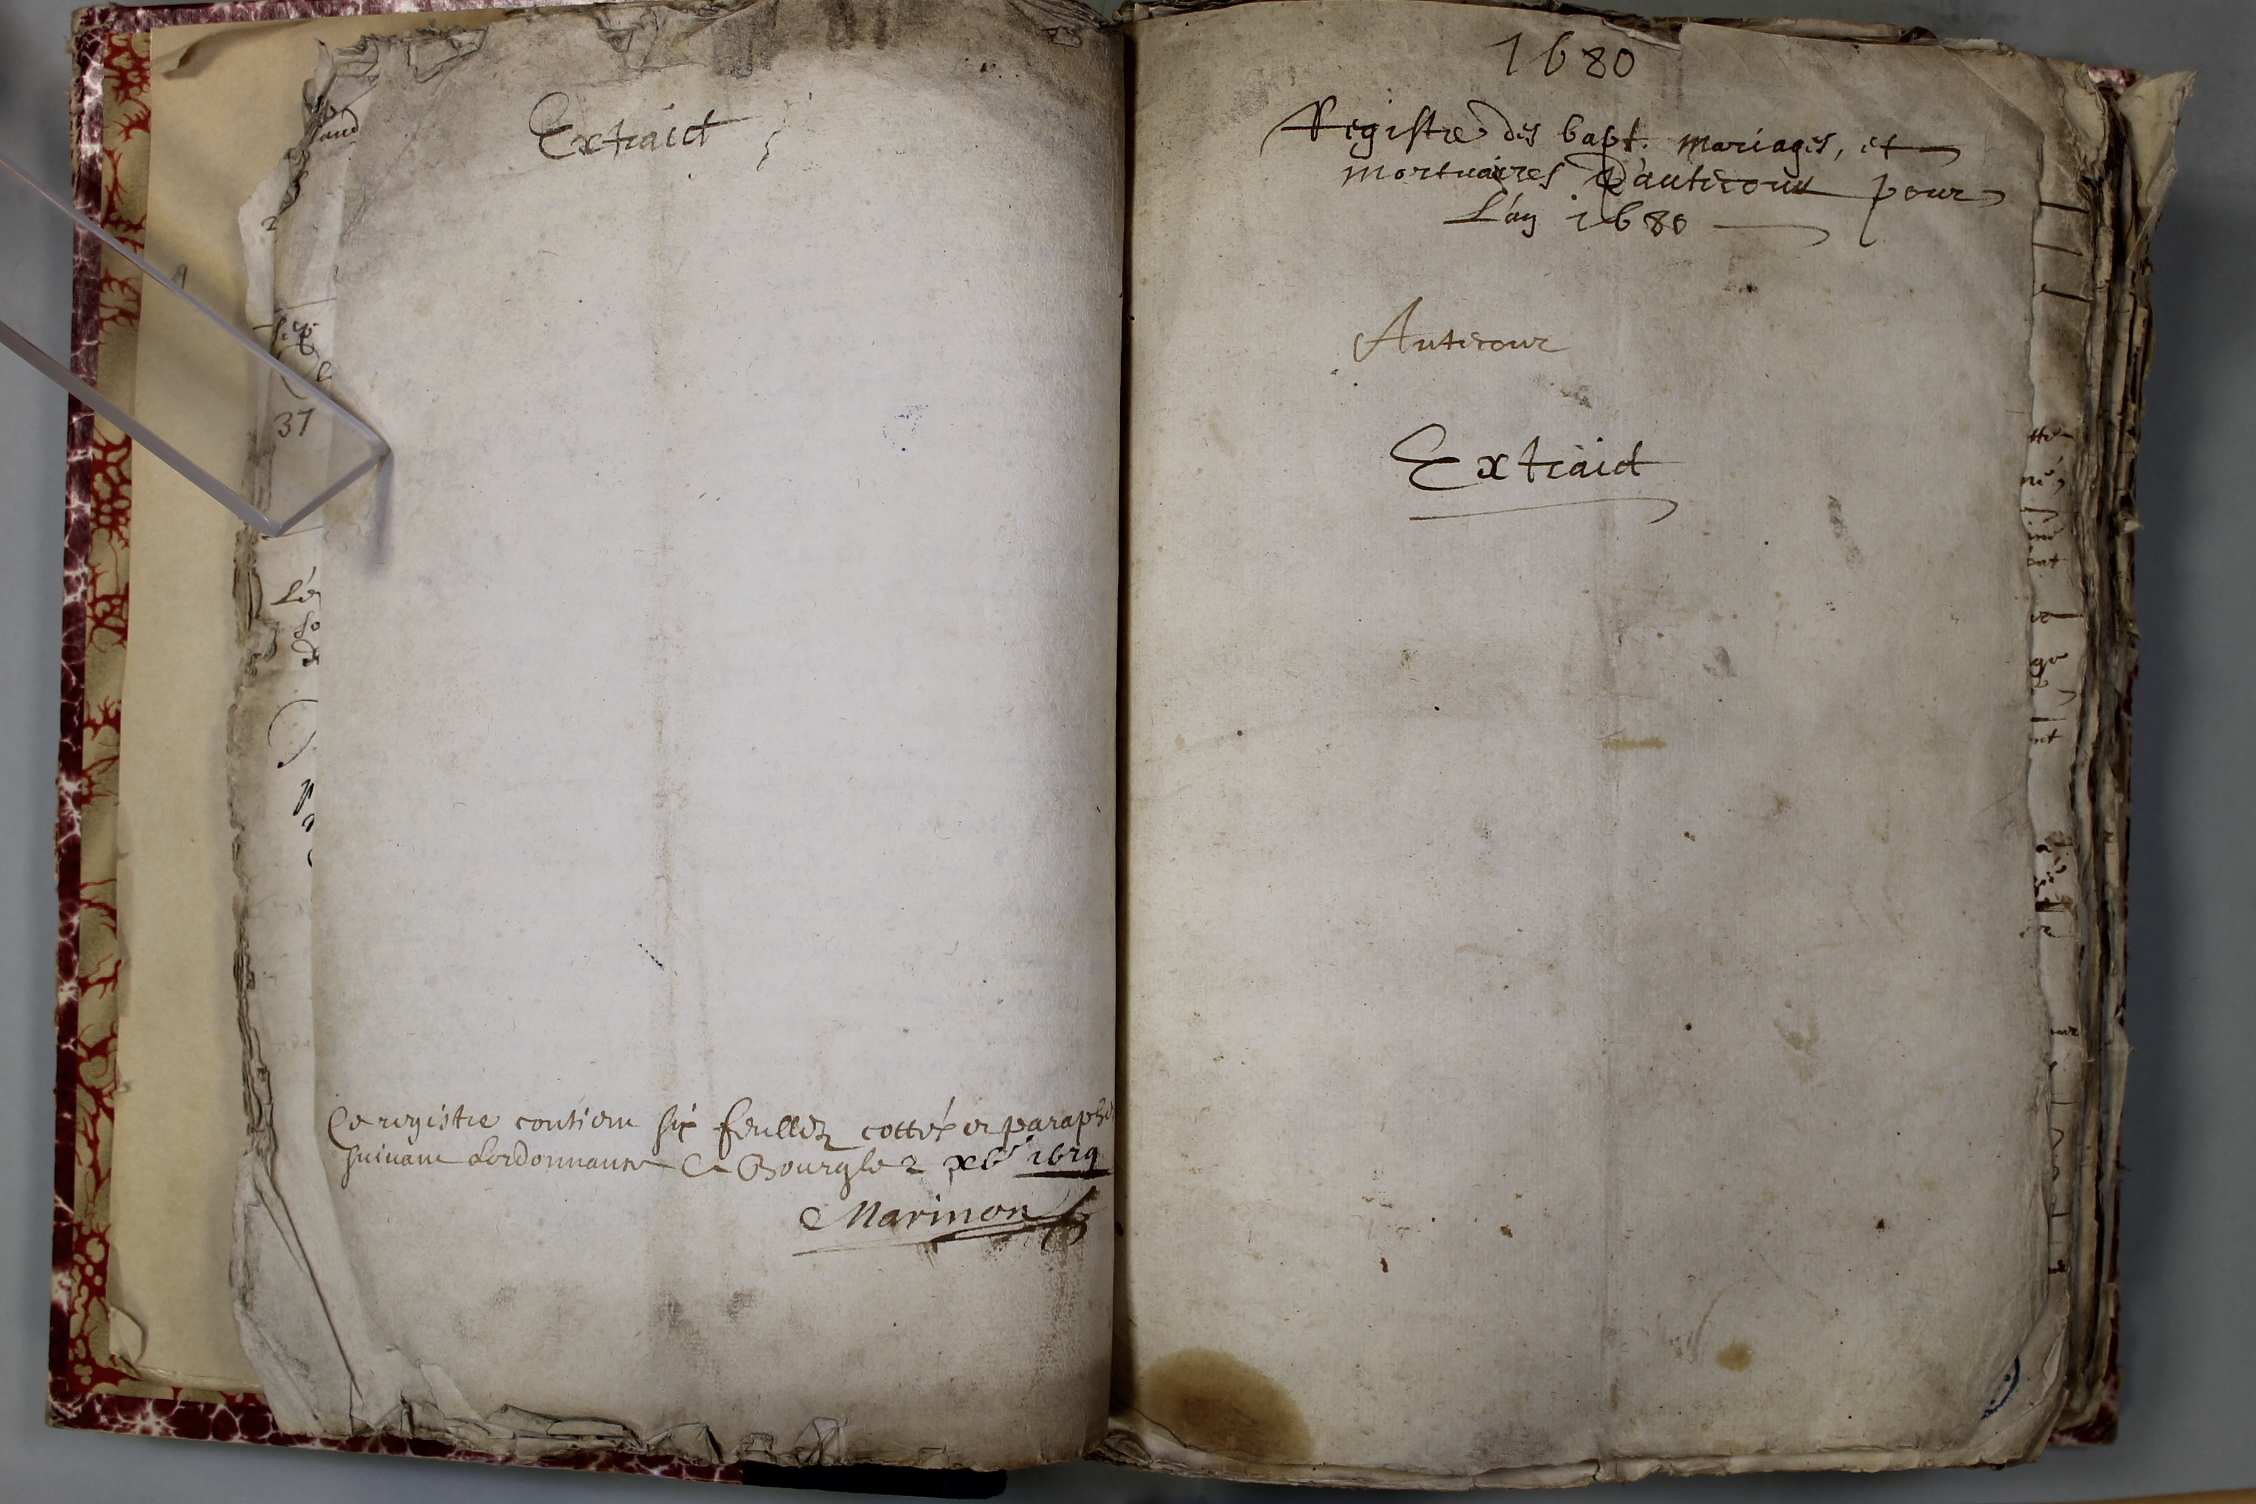 Extraict
Ce registre contient six feulletz cottéz et paraphé
suivant Lordonnance Ce Bourg le 2 xbr 1679
Marinon
37
1680
Registre des bapt. mariages, et
mortuaires D'auticour pour
L'an 1680
Auticour
Extraict